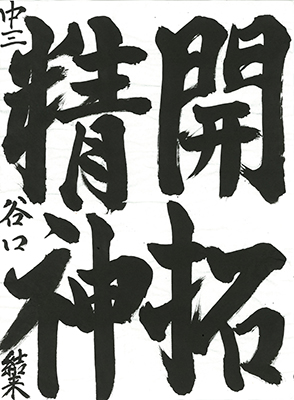 開拓
精神
中三 谷口 結菜